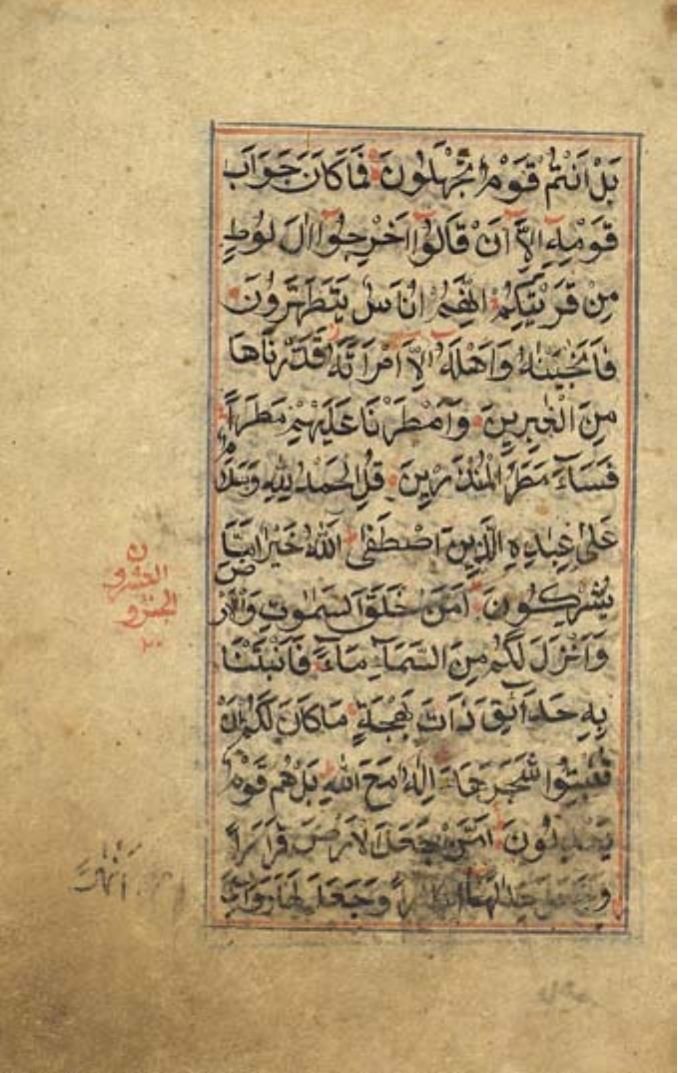 بَلْ اَنْتُمْ قَوْمٌ تَجْهَلُونَ فَمَا كَانَ جَوَابَ
قَوْمِهٖٓ اِلَّآ اَنْ قَالُوٓا اَخْرِجُوٓا اٰلَ لُوطٍ
مِنْ قَرْيَتِكُمْ اِنَّهُمْ اُنَاسٌ يَتَطَهَّرُونَ
فَاَنْجَيْنٰهُ وَاَهْلَهٗٓ اِلَّا امْرَاَتَهٗ قَدَّرْنَاهَا
مِنَ الْغٰبِرِينَ وَاَمْطَرْنَا عَلَيْهِمْ مَطَرًا
فَسَآءَ مَطَرُ الْمُنْذَرِينَ قُلِ الْحَمْدُ لِلّٰهِ وَسَلَامٌ
عَلٰى عِبَادِهِ الَّذِينَ اصْطَفٰى آللّٰهُ خَيْرٌ اَمَّا
يُشْرِكُونَ اَمَّنْ خَلَقَ السَّمٰوٰتِ وَالْاَرْضَ
وَاَنْزَلَ لَكُمْ مِنَ السَّمَآءِ مَآءً فَاَنْبَتْنَا
بِهِ حَدَآئِقَ ذَاتَ بَهْجَةٍ مَا كَانَ لَكُمْ اَنْ
تُنْبِتُوا شَجَرَهَا ءَاِلٰهٌ مَعَ اللّٰهِ بَلْ هُمْ قَوْمٌ
يَعْدِلُونَ اَمَّنْ جَعَلَ الْاَرْضَ قَرَارًا
وَجَعَلَ خِلَالَهَا اَنْهَارًا وَجَعَلَ لَهَا رَوَاسِيَ
الجزو
العشرون
٢٠